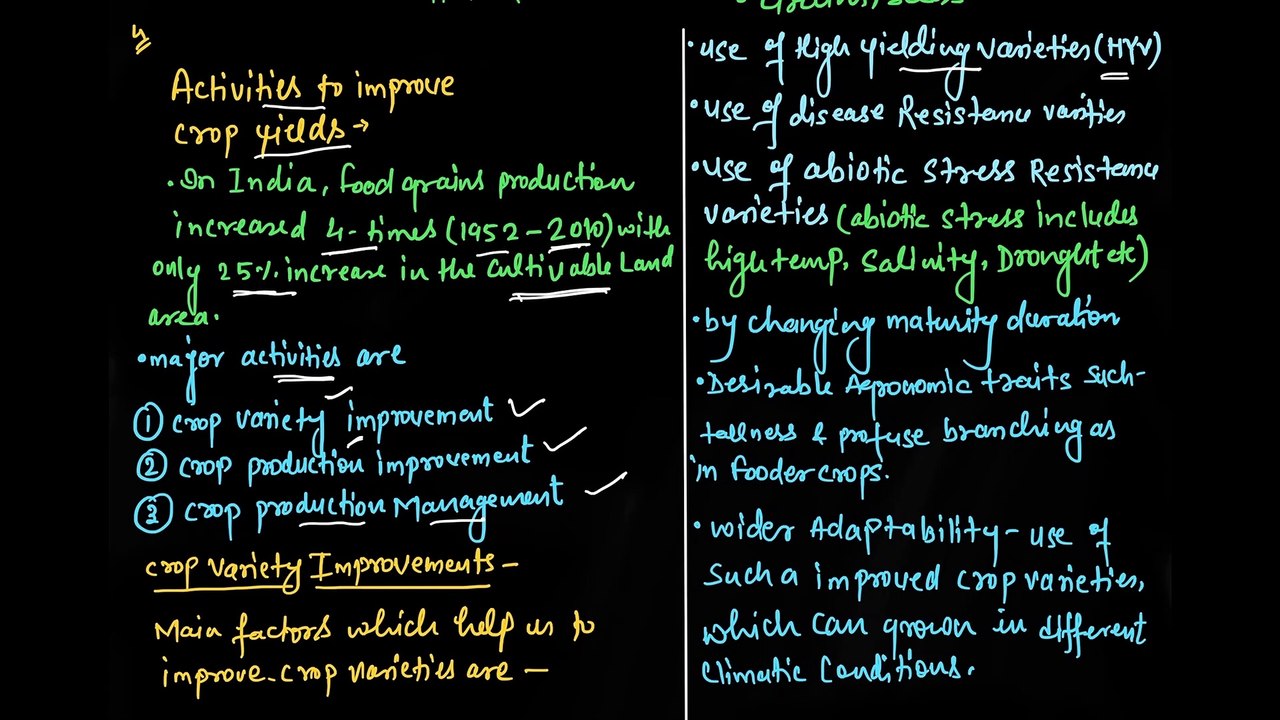 4
Activities to improve
crop yields →
• In India, food grains production
increased 4-times (1952-2010) with
only 25% increase in the cultivable Land
area.
• major activities are
① crop variety improvement ✓
② crop production improvement ✓
③ crop production Management ✓
crop variety Improvements -
Main factors which help us to
improve crop varieties are -
• use of High yielding varieties (HYV)
• use of disease Resistance varities
• use of abiotic stress Resistance
varieties (abiotic stress includes
high temp, salinity, Drought etc)
• by changing maturity duration
• Desirable Agronomic traits such-
tallness & profuse branching as
in fooder crops.
• wider Adaptability - use of
such a improved crop varieties,
which can grown in different
climatic conditions.